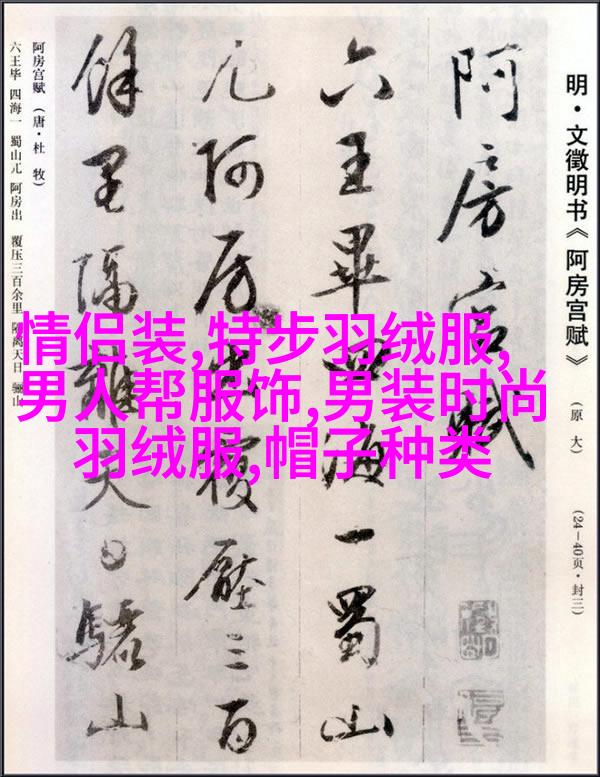 明·文徵明书《阿房宫赋》
（原大）
（24—40页·封三）
阿房宫赋
六王畢四海一蜀山
兀阿房出覆壓三百
餘里隔離天日驪山
阿房宫赋（唐·杜牧）
六王毕 四海一 蜀山兀 阿房出 覆压三百余里 隔离天日 骊山
情侣装,特步羽绒服,
男人帮服饰,男装时尚
羽绒服,帽子种类